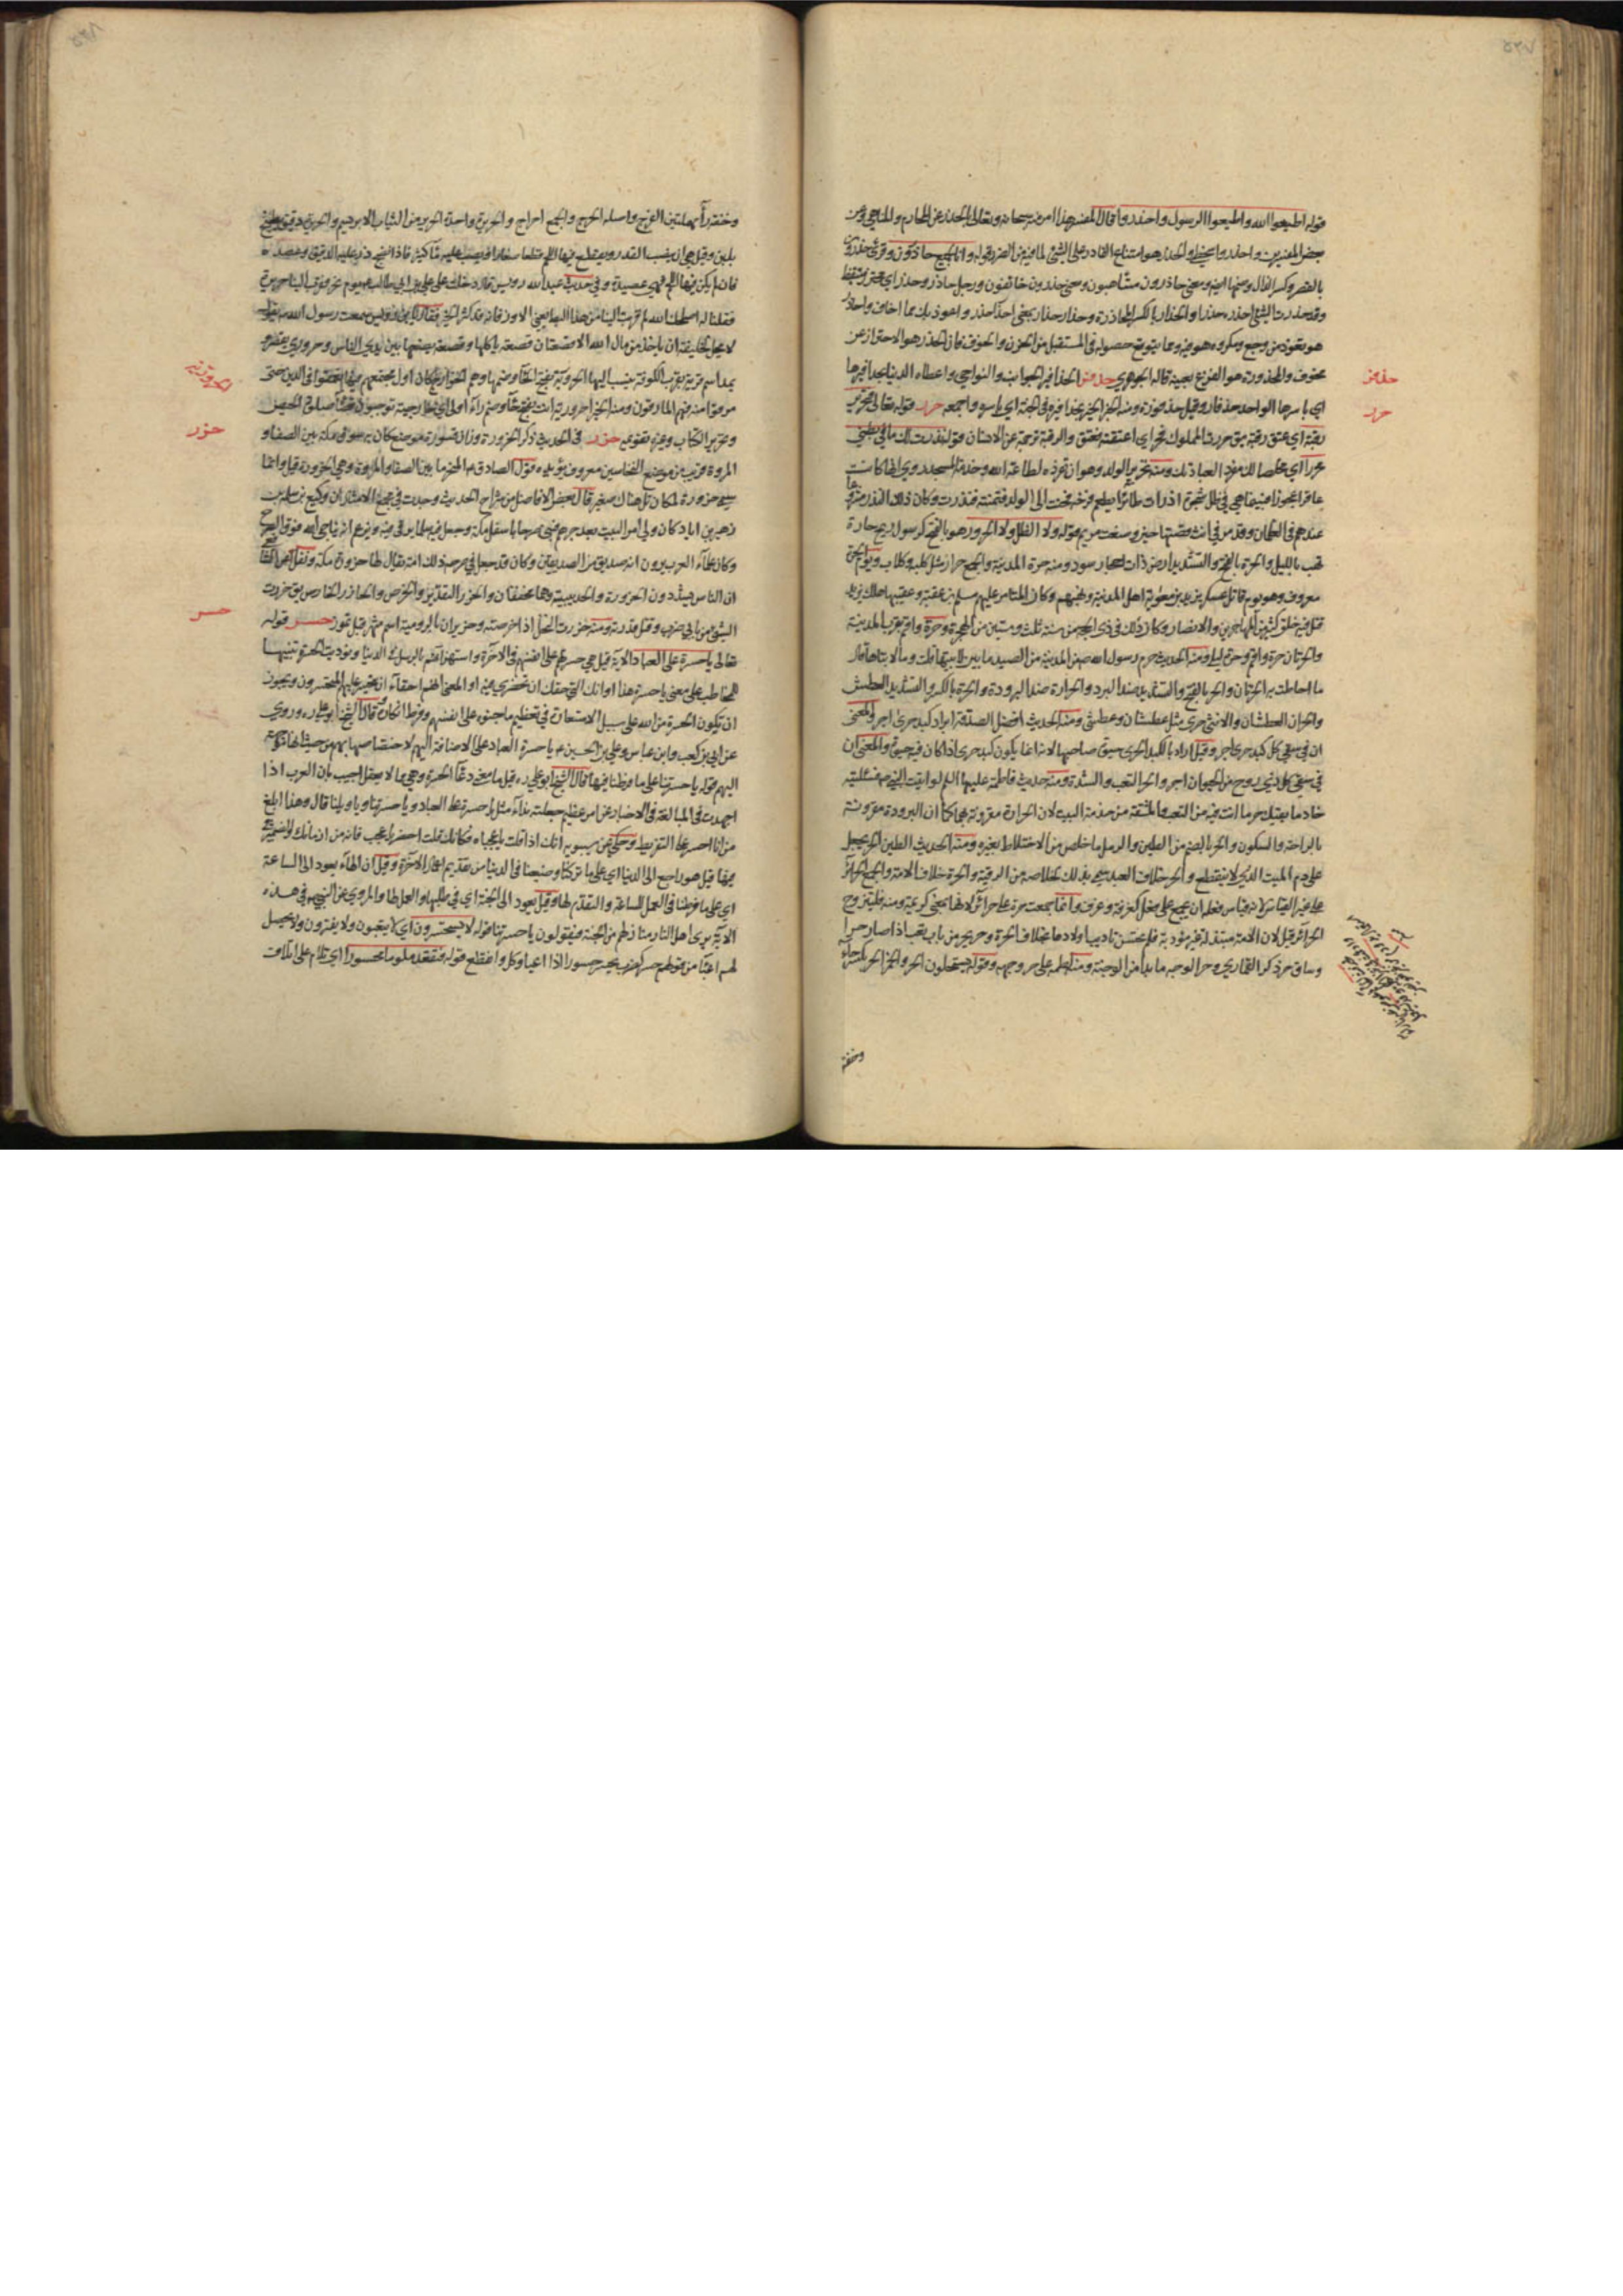 قوله اطيعوا الله واطيعوا الرسول واحذروا قال المفسر هذا امر منه سبحانه وتعالى بالحذر عن المحارم والمناهي وعن
بعض المفسرين واحذروا والحذر هو امتناع القادر على الشئ لما فيه من الضرر قوله وانا لجميع حاذرون وقرئ حذرون
بالقصر وكسر الذال وضمها ايضا ومعنى حاذرون متأهبون ومعنى حذرون خائفون ورجل حاذر وحذر اي محترز متيقظ
وقد حذرت الشئ احذره حذرا والحذار بالكسر المحاذرة وحذار حذار بمعنى احذر احذر واعوذ بك مما اخاف واحاذر
هو تعوذ من وجع ومكروه هو فيه ومما يتوقع حصوله في المستقبل من الحزن والخوف فان الحذر هو الاحتراز عن
مخوف والمحذورة هو الفزع بعينه قاله الجوهري حذفر الحذافير الجوانب والنواحي واعطاه الدنيا بحذافيرها
اي باسرها الواحد حذفار وقيل حذفورة ومنه الخير بحذافيره في الجنة اي باسره واجمعه حرر قوله تعالى تحرير
رقبة اي عتق رقبة يق حررت المملوك فحر اي اعتقته فعتق والرقبة ترجمة عن الانسان قوله نذرت لك ما في بطني
محررا اي مخلصا لك مفردا لعبادتك ومنه تحرير الولد وهو ان تفرده لطاعة الله وخدمة المسجد روي انها كانت
عاقرا عجوزا فبينما هي في ظل شجرة اذ رأت طائرا يطعم فرخه فحنت الى الولد فتمنته فنذرت وكان ذلك النذر مشروعا
عندهم في الغلمان وقد مر في انث قصتها قوله ولا الظل ولا الحرور هو بالفتح كرسول ريح حارة
تهب بالليل والحرة بالفتح والتشديد ارض ذات احجار سود ومنه حرة المدينة والجمع حرار مثل كلبة وكلاب ويوم الحرة
معروف وهو يوم قاتل عسكر يزيد بن معوية اهل المدينة ونهبهم وكان المتامر عليهم مسلم بن عقبة وعقيبها هلك يزيد
قتل فيه خلق كثير من المهاجرين والانصار وكان ذلك في ذي الحجة من سنة ثلث وستين من الهجرة وحرة واقم بقرب المدينة
والحرتان حرة واقم وحرة ليلى ومنه الحديث حرم رسول الله ص من المدينة من الصيد ما بين لابتيها قلت وما لابتاها قال
ما احاطت به الحرتان والحر بالفتح والتشديد ضد البرد والحرارة ضد البرودة والحرة بالكسر والتشديد العطش
والحران العطشان والانثى حرى مثل عطشان وعطشى ومنه الحديث افضل الصدقة ابراد كبد حرى اجر والمعنى
ان في سقي كل كبد حرى اجر وقيل اراد بالكبد الحرى حيوة صاحبها لانه انما يكون كبد حرى اذا كان فيه حيوة والمعنى ان
في سقي كل ذي روح من الحيوان اجر والحر التعب والشدة ومنه حديث فاطمة عليها السلم لو اتيت النبي ص فسئلتيه
خادما يقيك حر ما انت فيه من التعب والمشقة من خدمة البيت لان الحرارة مقرونة بهما كما ان البرودة مقرونة
بالراحة والسكون والحر بالضم من الطين والرمل ما خلص من الاختلاط بغيره ومنه الحديث الطين الحر يجعل
على دم الميت الذي لا ينقطع والحر خلاف العبد سمي بذلك لخلاصه من الرقية والحرة خلاف الامة والجمع الحرائر
على غير القياس لان قياس فعلة ان يجمع على فعل كغرفة وغرف وانما جمعت حرة على حرائر لانها بمعنى كريمة ومنه فليتزوج
الحرائر قيل لان الامة مبتذلة غير مؤدبة فلم تحسن تاديب اولادها بخلاف الحرة وحر يحر من باب تعب اذا صار حرا
وساق حر ذكر القماري وحر الوجه ما بدا من الوجنة ومنه لطمه على حر وجهه وقوله يستحلون الحر والخمر الحر بكسر حاء
حذفر
حرر
وخفة
وخفة راء مهملتين الفرج واصله الحرح والجمع احراح والحريرة واحدة الحرير من الثياب الابريسم والحريرة دقيق يطبخ
بلبن وقيل هي ان ينصب القدر ويقطع فيها اللحم قطعا صغارا ويصب عليه ماء كثير فاذا نضج ذر عليه الدقيق وعصد
فان لم يكن فيها اللحم فهي عصيدة وفي حديث عبد الله قال دخلت على علي بن ابي طالب يوم نحر فقرب الينا حريرة
فقلنا له اصلحك الله لو قربت الينا من هذا البط يعني الاوز فان الله قد كثر الخير فقال سمعت رسول الله ص يقول
لا يحل للخليفة ان ياخذ من مال الله الا قصعتان قصعة ياكلها وقصعة يضعها بين ايدي الناس وحروري يقصر و
يمد اسم قرية بقرب الكوفة نسب اليها الحرورية بفتح الحاء وضمها وهم الخوارج كان اول مجتمعهم فيها تعمقوا في الدين حتى
مرقوا منه فهم المارقون ومنه الخبر احرورية انت بفتح حاء وضم راء اولى اي خارجية توجبون قضاء صلوة الحيض
وتحرير الكتاب وغيره تقويمه حزر في الحديث ذكر الحزورة وزان قسورة موضع كان به سوق مكة بين الصفا و
المروة قريب من موضع النخاسين معروف يؤيده قول الصادق ع المنحر ما بين الصفا والمروة وهي الحزورة قيل وانما
سمي حزورة لمكان تل هناك صغير قال بعض الافاضل من شراح الحديث وجدت في مجمع الامثال ان وكيع بن سلمة بن
زهير بن اياد كان ولي امر البيت بعد جرهم فبنى صرحا باسفل مكة وجعل فيه سلما يرقى فيه ويزعم انه يناجي الله فوق الصرح
وكان علماء العرب يرون انه صديق من الصديقين وكان قد جعل في صرحه ذلك امة يقال لها حزورة مكة ونقل عن الشافعي
ان الناس يشددون الحزورة والحديبية وهما مخففان والحزر التقدير والخرص والحازر الخارص يق حزرت
الشئ من بابي ضرب وقتل قدرته ومنه حزرت النخل اذا خرصته وحزيران بالرومية اسم شهر قبل تموز حسر قوله
تعالى يا حسرة على العباد الآية قيل هي حسرتهم على انفسهم في الآخرة واستهزائهم بالرسل في الدنيا ونوديت الحسرة تنبيها
للمخاطب على معنى يا حسرة هذا اوانك التي حقك ان تحضري فيه او المعنى انهم احقاء ان يتحسر عليهم المتحسرون ويجوز
ان تكون الحسرة من الله على سبيل الاستعارة في تعظيم ما جنوه على انفسهم وفرط انكاره قال الشيخ ابو علي ره وروي
عن ابي بن كعب وابن عباس وعلي بن الحسين ع يا حسرة العباد على الاضافة اليهم لاختصاصها بهم من حيث انها موجهة
اليهم قوله يا حسرتنا على ما فرطنا فيها قال الشيخ ابو علي ره قيل ما معنى دعاء الحسرة وهي مما لا يعقل اجيب بان العرب اذا
اجتهدت في المبالغة في الاخبار عن امر عظيم جعلته نداء مثل يا حسرة على العباد ويا حسرتنا ويا ويلنا قال وهذا ابلغ
من انا احسر على التفريط وحكي عن سيبويه انك اذا قلت يا عجباه فكانك قلت احضر يا عجب فانه من ازمانك والضمير في
فيها قيل هو راجع الى الدنيا اي على ما تركنا وضيعنا في الدنيا من تقديم اعمال الآخرة وقيل ان الهاء يعود الى الساعة
اي على ما فرطنا في العمل للساعة والتقدم لها وقيل يعود الى الجنة اي في طلبها والعمل لها والمروي عن النبي ص في هذه
الآية يرى اهل النار منازلهم من الجنة فيقولون يا حسرتنا قوله لا يستحسرون اي لا يتعبون ولا يفترون ولا يحصل
لهم اعياء من قولهم حسر البعير يحسر حسورا اذا اعيا وكل وانقطع قوله فتقعد ملوما محسورا اي تلام على اتلاف
حزر
حسر